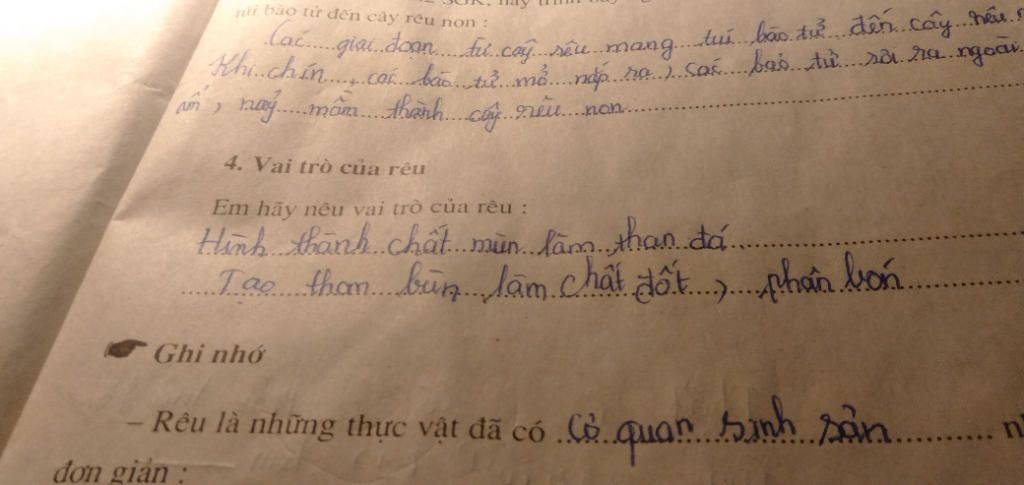 SGK, hãy trình bày
túi bào tử đến cây rêu non :
Các giai đoạn từ cây rêu mang túi bào tử đến cây rêu
Khi chín, các bào tử mở nắp ra, các bào tử rơi ra ngoài
ẩm, nảy mầm thành cây rêu non
4. Vai trò của rêu
Em hãy nêu vai trò của rêu :
Hình thành chất mùn làm than đá
Tạo than bùn, làm chất đốt, phân bón
Ghi nhớ
– Rêu là những thực vật đã có cơ quan sinh sản
đơn giản :